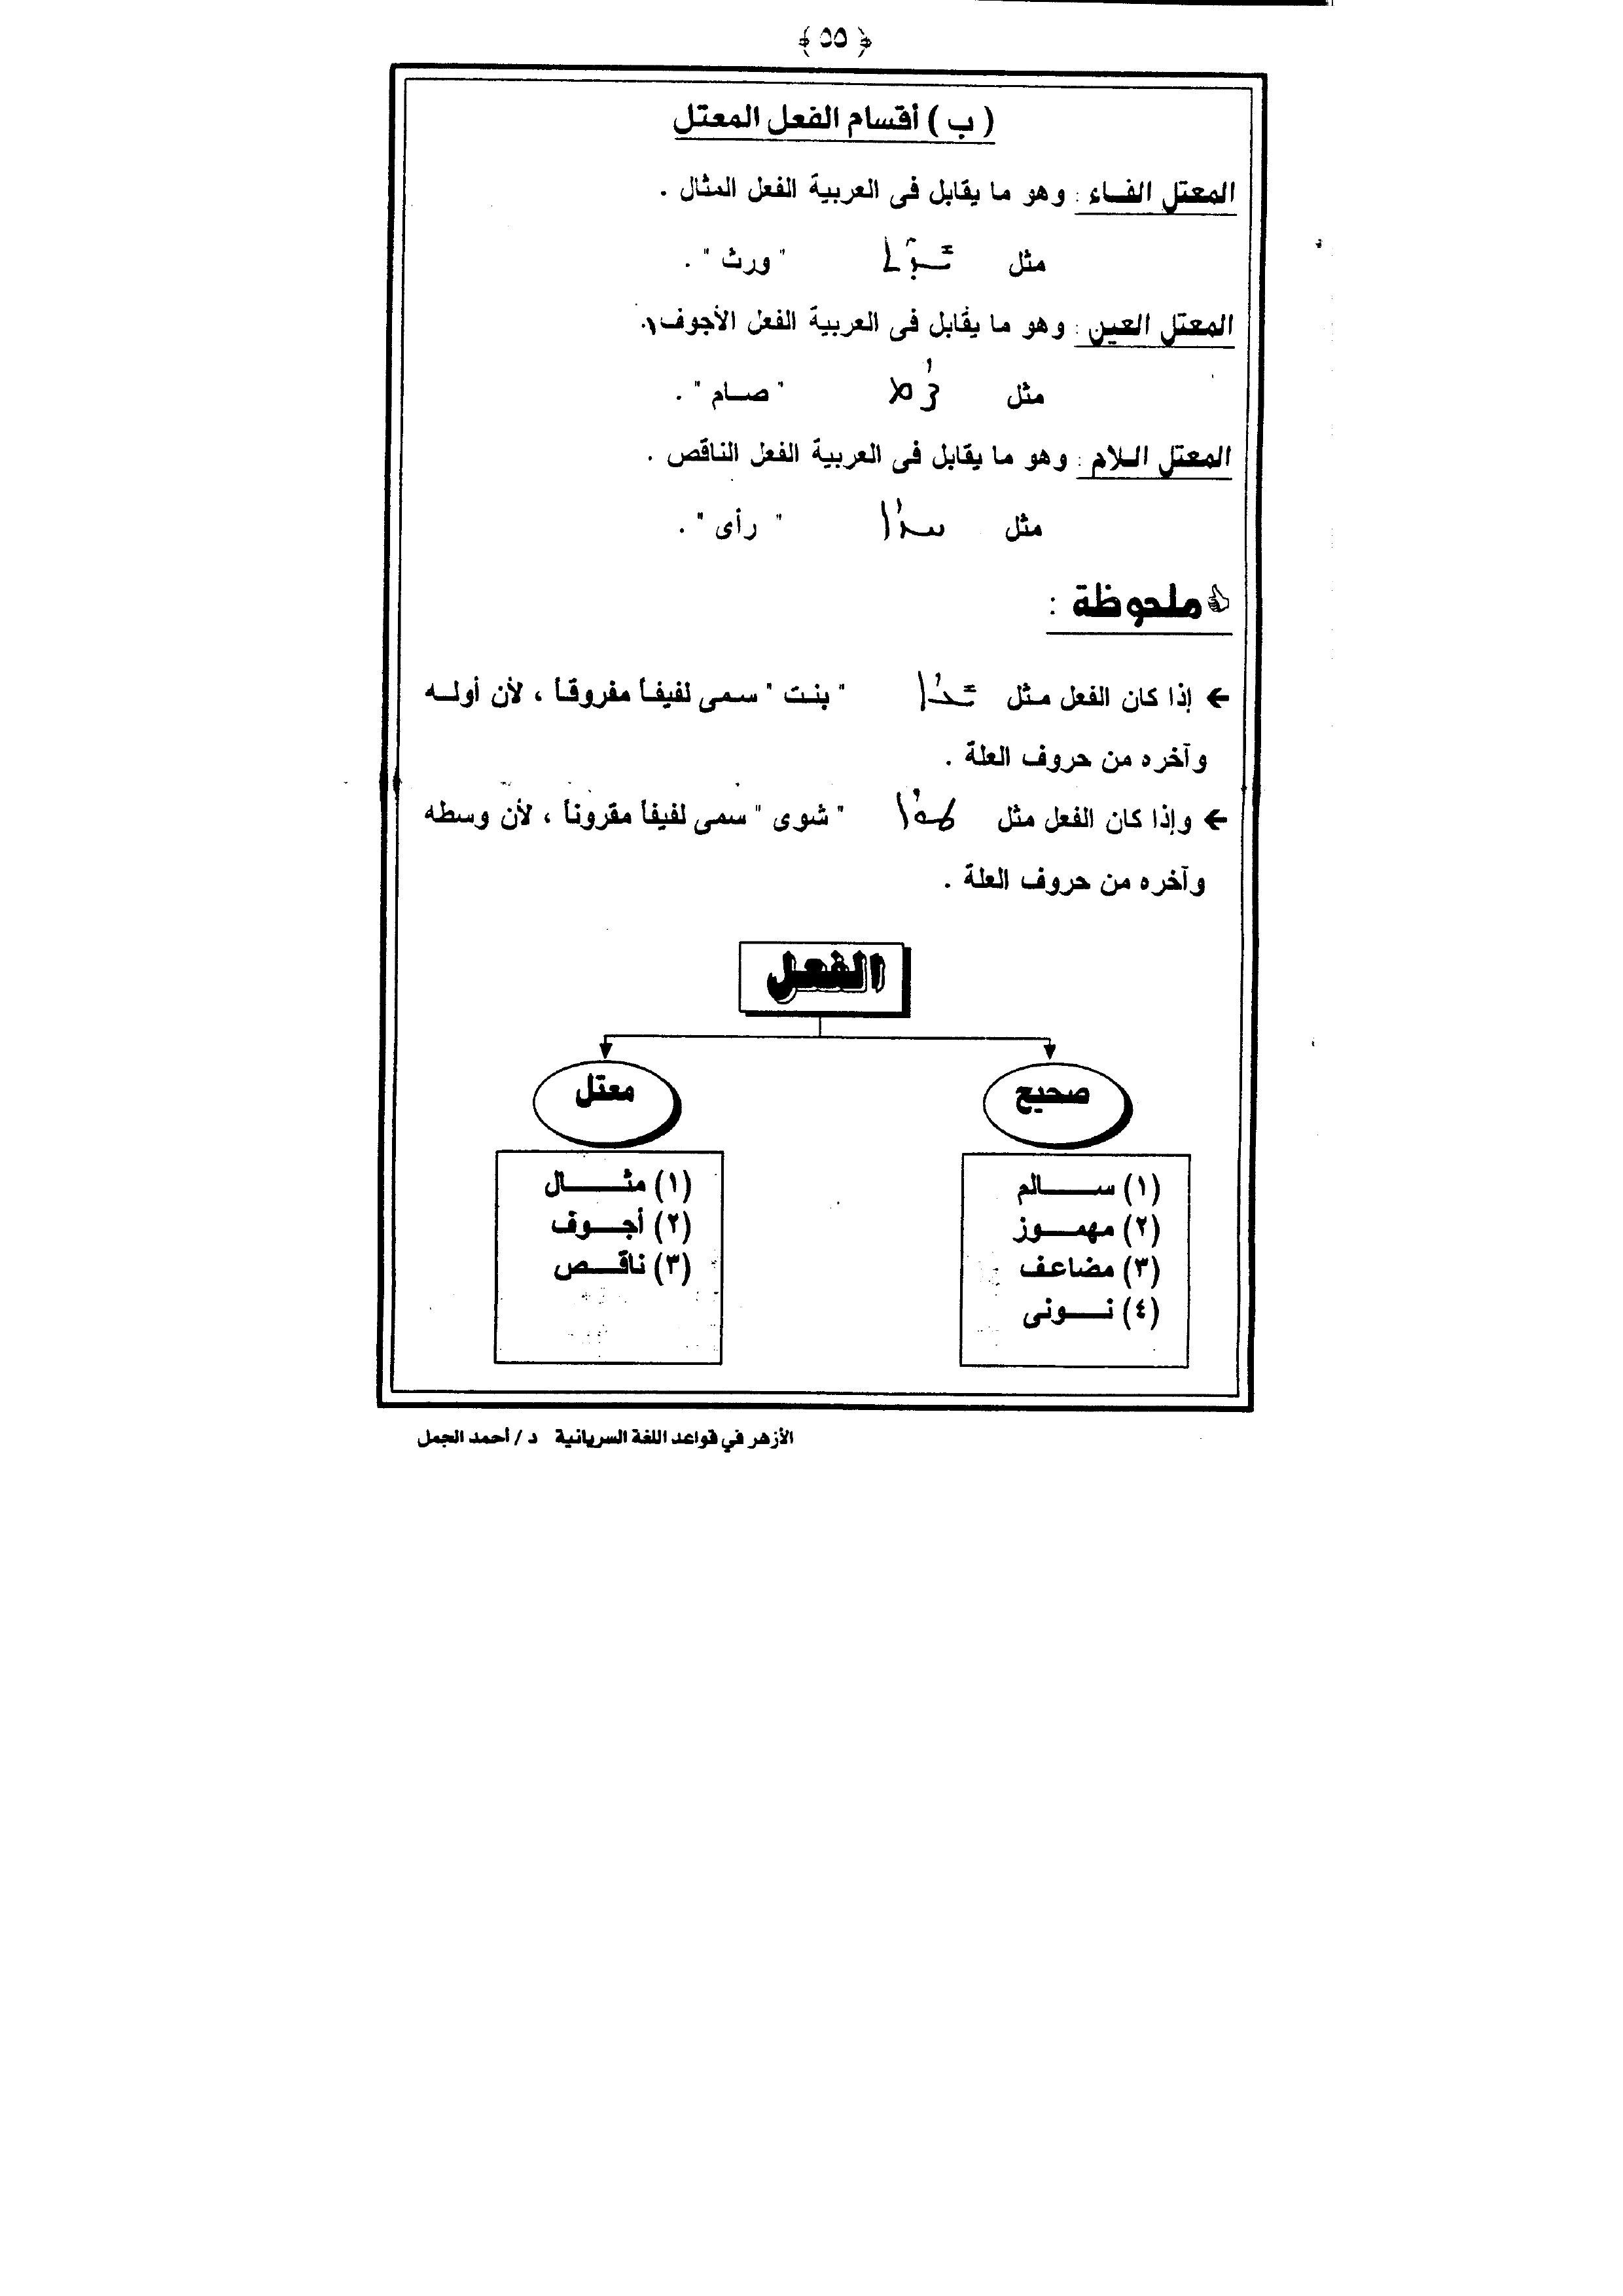 ﴿ ٥٥ ﴾
( ب ) أقسام الفعل المعتل
المعتل الفـاء : وهو ما يقابل فى العربية الفعل المثال .
مثل " ورث " .
المعتل العين : وهو ما يقابل فى العربية الفعل الأجوف .
مثل " صـام " .
المعتل الـلام : وهو ما يقابل فى العربية الفعل الناقص .
مثل " رأى " .
ملحوظة :
← إذا كان الفعل مـثل " بنـت " سـمى لفيفـاً مفروقـاً ، لأن أولـه
وآخره من حروف العلة .
← وإذا كان الفعل مثل " شوى " سمى لفيفاً مقروناً ، لأن وسطه
وآخره من حروف العلة .
الفعل
صحيح
معتل
(١) ســـالم
(٢) مهمـــوز
(٣) مضاعـف
(٤) نـــونى
(١) مثـــــال
(٢) أجـــوف
(٣) ناقـــص
الأزهر في قواعد اللغة السريانية د / أحمد الجمل